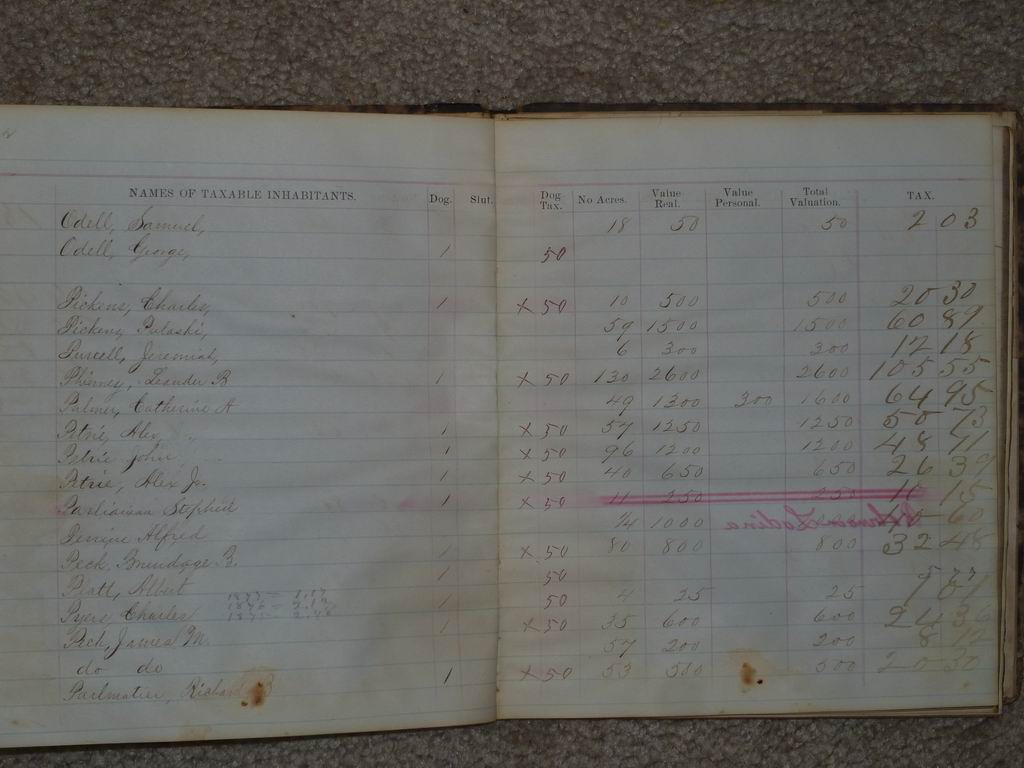 NAMES OF TAXABLE INHABITANTS. Dog. Slut. Dog Tax. No Acres. Value Real. Value Personal. Total Valuation. TAX.
Odell, Samuel, 18 50 50 2 03
Odell, George, 1 50
Pickens, Charles, 1 x 50 10 500 500 20 30
Pickens, Pulaski, 59 1500 1500 60 89
Purcell, Jeremiah, 6 300 300 12 18
Phinney, Leander B 1 x 50 130 2600 2600 105 55
Palmer, Catherine A 49 1300 300 1600 64 95
Petrie, Alex, 1 x 50 57 1250 1250 50 73
Petrie John 1 x 50 96 1200 1200 48 71
Petrie, Alex Jr. 1 x 50 40 650 650 26 39
Stephen 1 x 50 11 250 250 10 15
Perrine Alfred 14 1000 60
Peck, Brundage B. 1 x 50 80 800 800 32 48
Platt, Albert 1 50
Pyers, Charles 1 50 4 25 25
Peck, James M. 1 x 50 35 600 600 24 36
do do 57 200 200 8 12
Parlmatier, Richard B 1 x 50 53 500 500 20 30